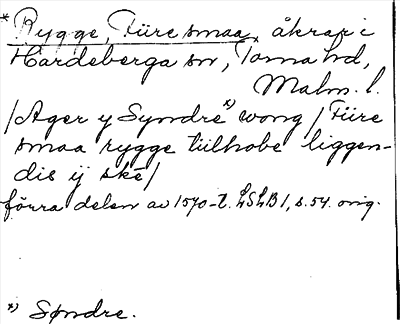 * Rygge, Füre smaa, åkrar i
Hardeberga sn, Torna hd,
Malm. l.
/Ager y Syndre *) wong / Füre
smaa rygge tilhobe liggen-
dis ij ske/
förra delen av 1570-t. LSLB1, s. 54. orig.
*) Søndre.